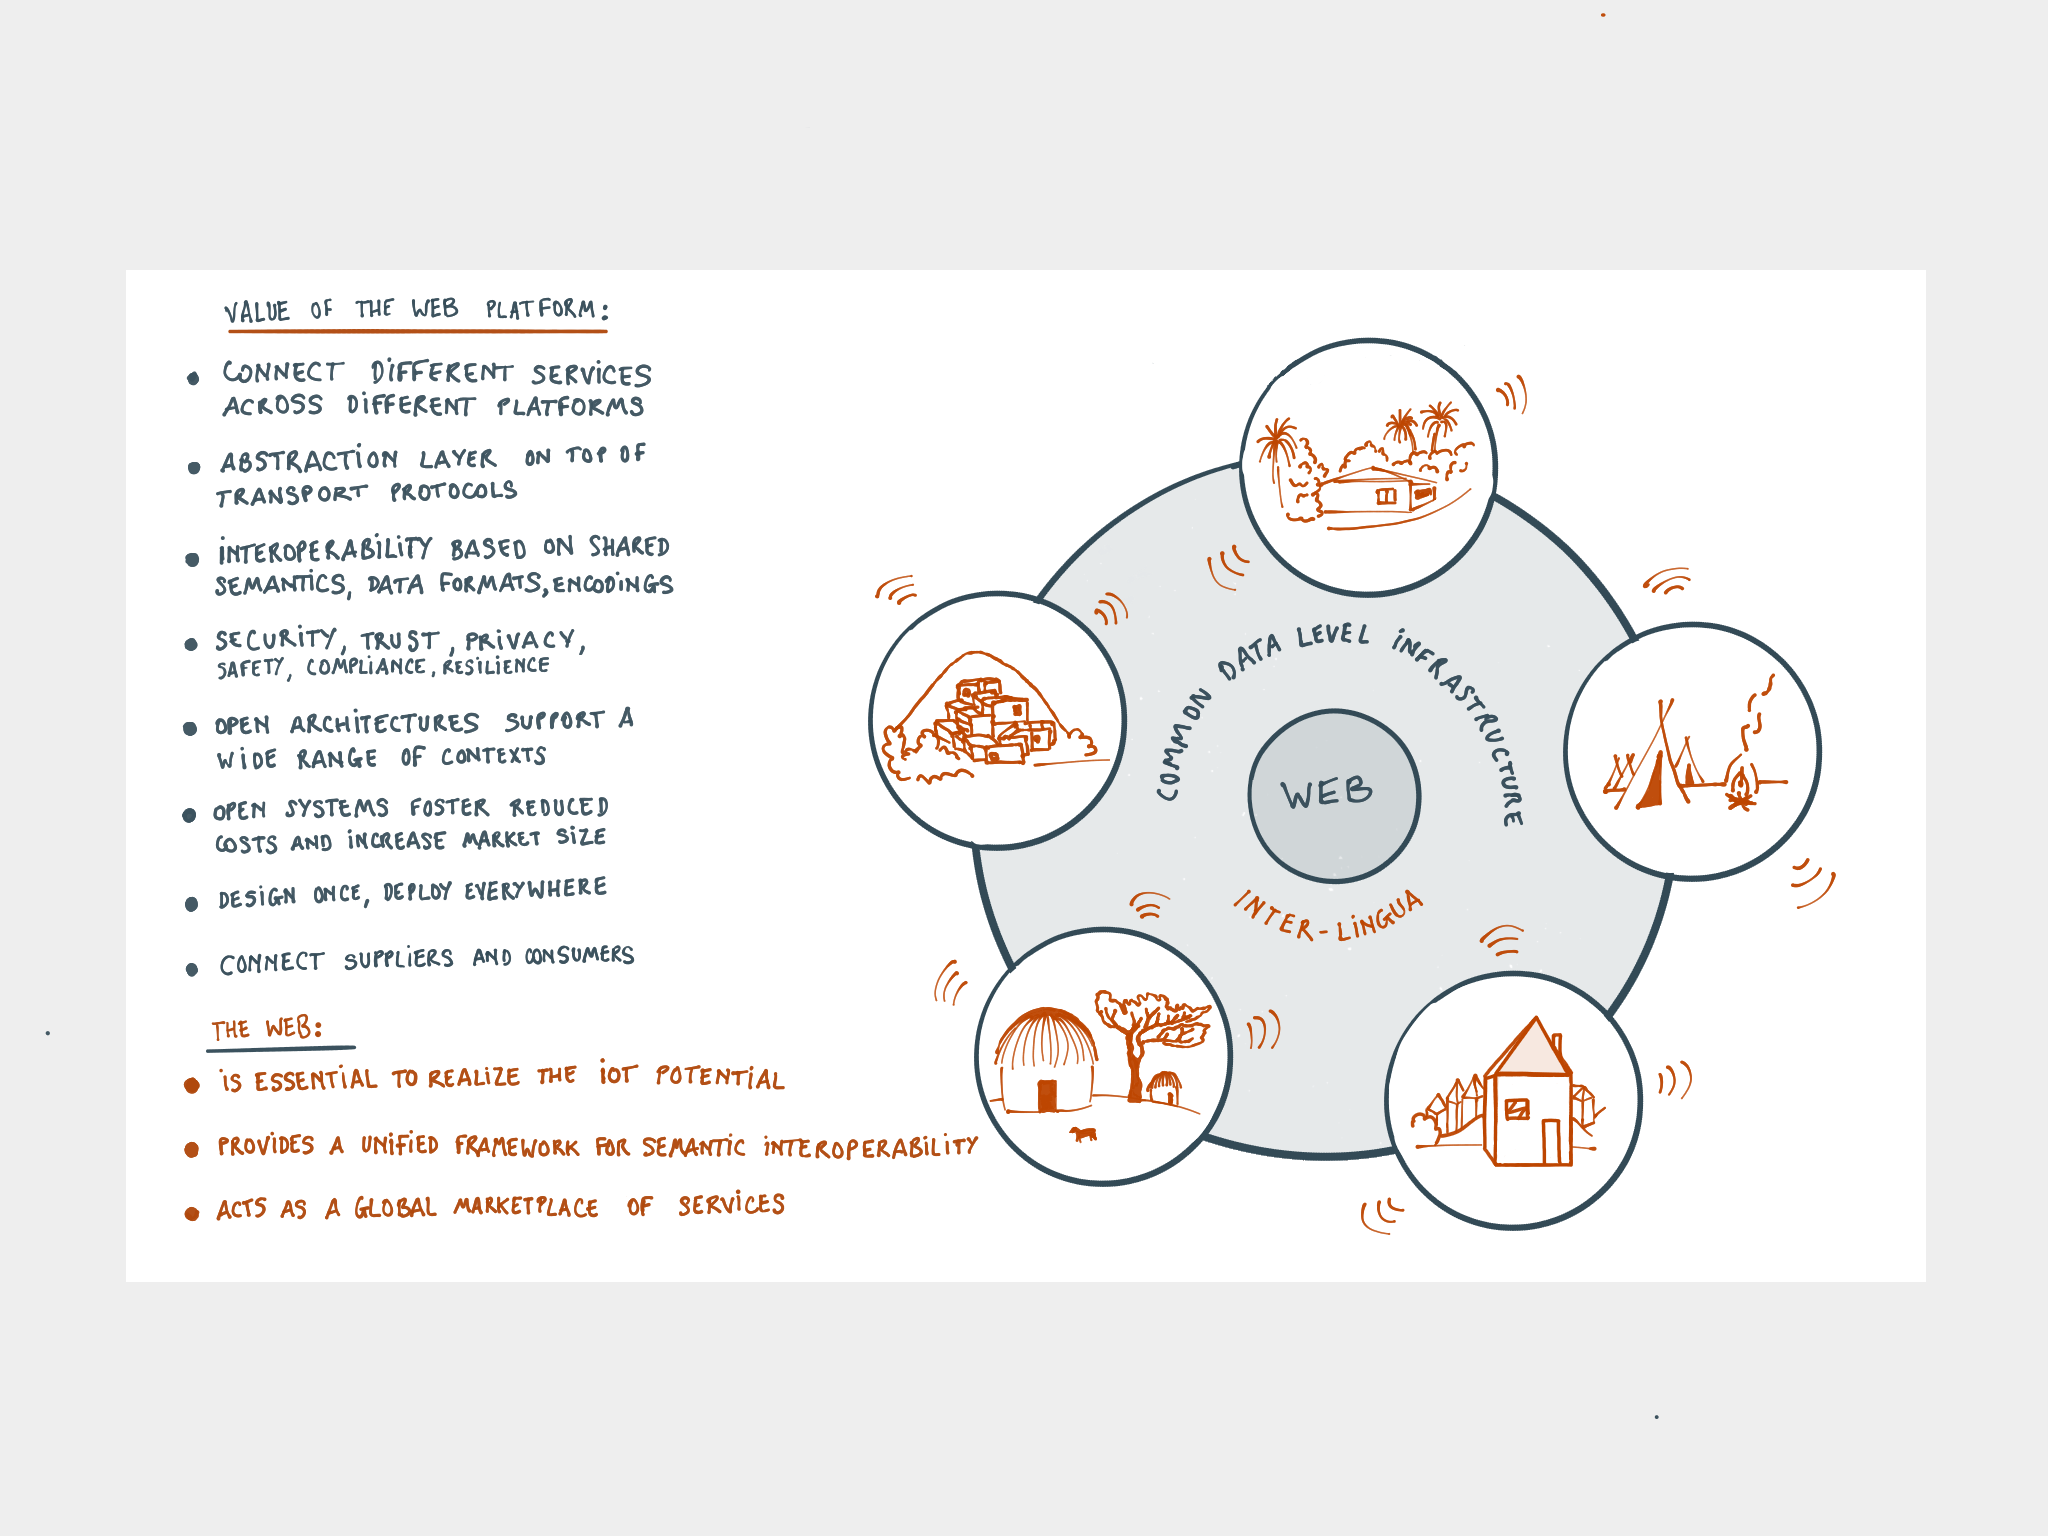 VALUE OF THE WEB PLATFORM:
• CONNECT DIFFERENT SERVICES
ACROSS DIFFERENT PLATFORMS
• ABSTRACTION LAYER ON TOP OF
TRANSPORT PROTOCOLS
• INTEROPERABILITY BASED ON SHARED
SEMANTICS, DATA FORMATS, ENCODINGS
• SECURITY, TRUST, PRIVACY,
SAFETY, COMPLIANCE, RESILIENCE
• OPEN ARCHITECTURES SUPPORT A
WIDE RANGE OF CONTEXTS
• OPEN SYSTEMS FOSTER REDUCED
COSTS AND INCREASE MARKET SIZE
• DESIGN ONCE, DEPLOY EVERYWHERE
• CONNECT SUPPLIERS AND CONSUMERS
THE WEB:
• IS ESSENTIAL TO REALIZE THE IOT POTENTIAL
• PROVIDES A UNIFIED FRAMEWORK FOR SEMANTIC INTEROPERABILITY
• ACTS AS A GLOBAL MARKETPLACE OF SERVICES
COMMON DATA LEVEL INFRASTRUCTURE
WEB
INTER-LINGUA